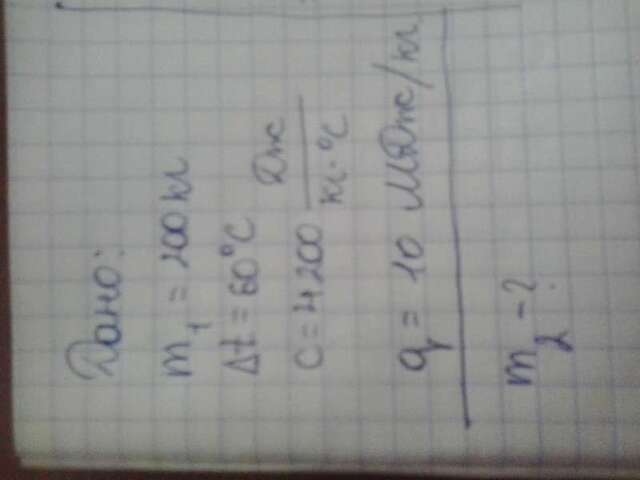 Дано:
m₁ = 200 кг
Δt = 60°C
c = 4200 Дж/кг·°C
q = 10 МДж/кг
m₂ - ?